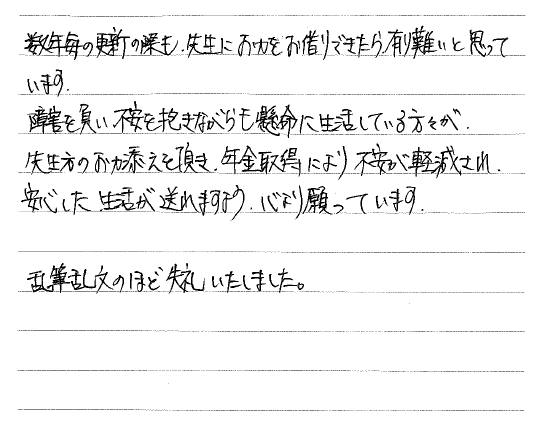 数年毎の更新の際も、先生にお力をお借りできたら有難いと思って
います。
障害を負い、不安を抱きながらも懸命に生活している方々が、
先生方のお力添えを頂き、年金取得により不安が軽減され、
安心した生活が送れますよう、心より願っています。
乱筆乱文のほど失礼いたしました。